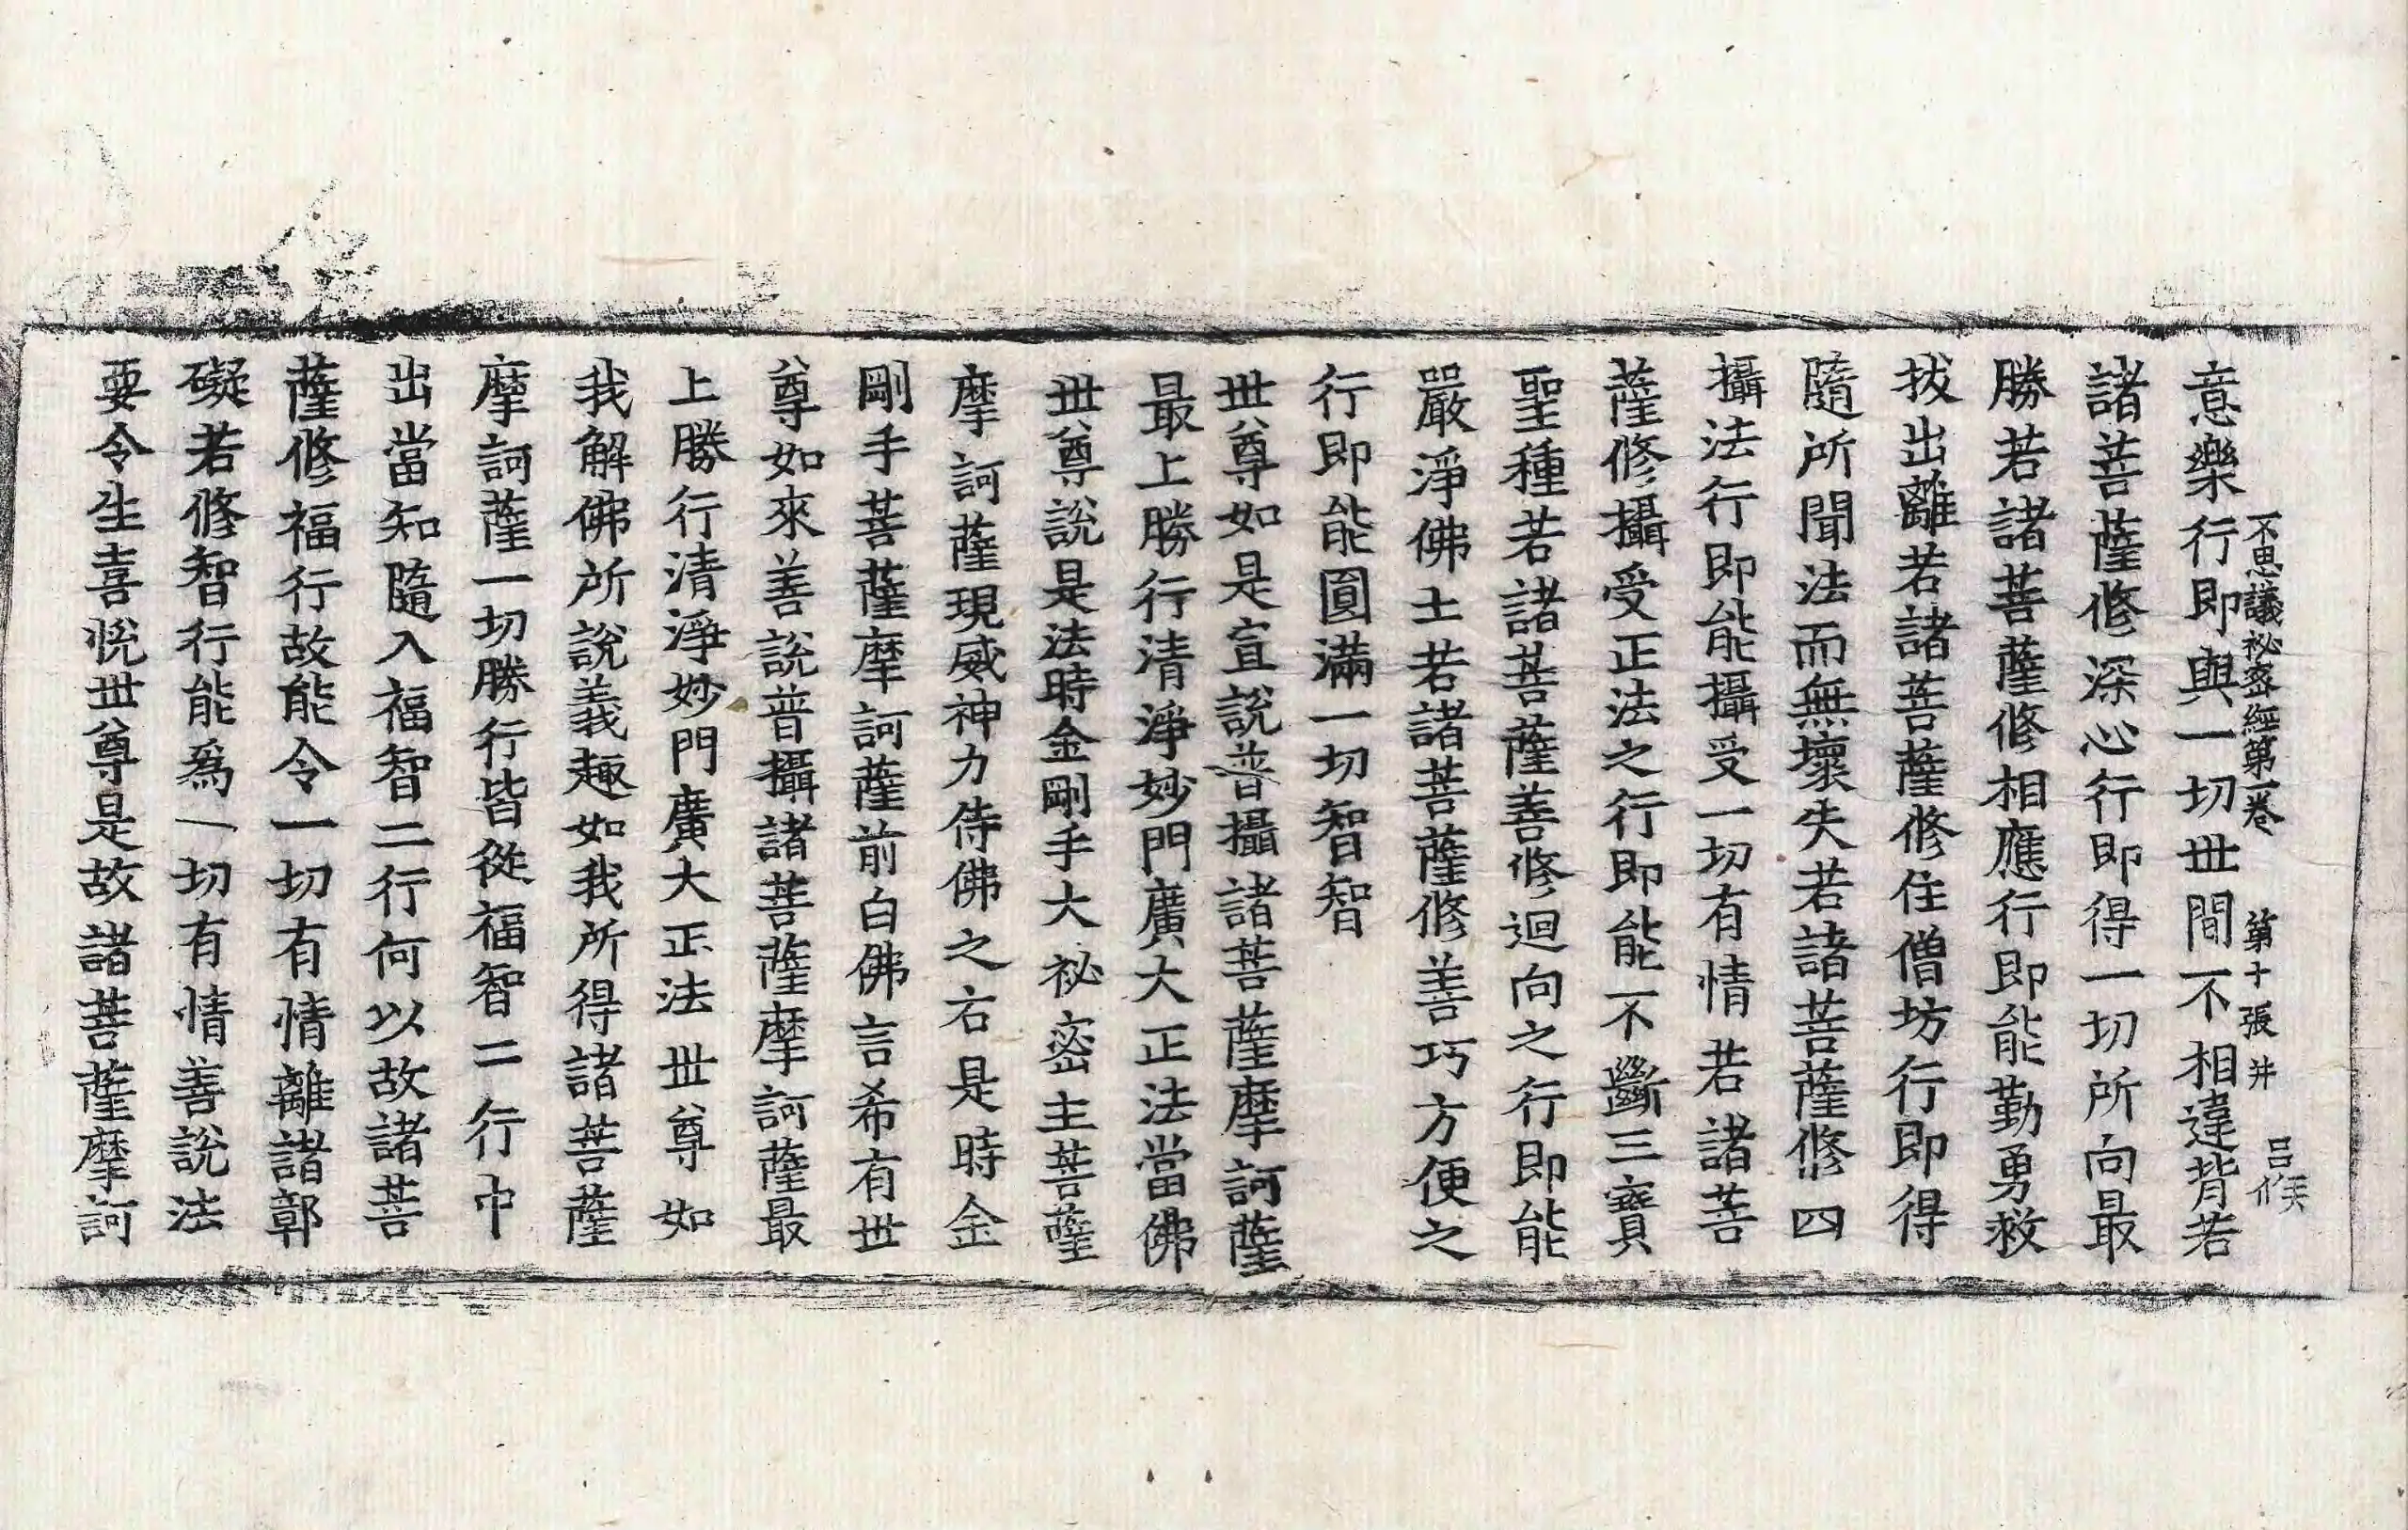 不思議祕密經第一卷 第十張 井 呂候
意樂行即與一切世間不相違背若
諸菩薩修深心行即得一切所向最
勝若諸菩薩修相應行即能勤勇救
拔出離若諸菩薩修住僧坊行即得
隨所聞法而無壞失若諸菩薩修四
攝法行即能攝受一切有情若諸菩
薩修攝受正法之行即能不斷三寶
聖種若諸菩薩善修迴向之行即能
嚴淨佛土若諸菩薩修善巧方便之
行即能圓滿一切智智
世尊如是宣說普攝諸菩薩摩訶薩
最上勝行清淨妙門廣大正法當佛
世尊說是法時金剛手大祕密主菩薩
摩訶薩現威神力侍佛之右是時金
剛手菩薩摩訶薩前白佛言希有世
尊如來善說普攝諸菩薩摩訶薩最
上勝行清淨妙門廣大正法世尊如
我解佛所說義趣如我所得諸菩薩
摩訶薩一切勝行皆從福智二行中
出當知隨入福智二行何以故諸菩
薩修福行故能令一切有情離諸鄣
礙若修智行能爲一切有情善說法
要令生喜悅世尊是故諸菩薩摩訶